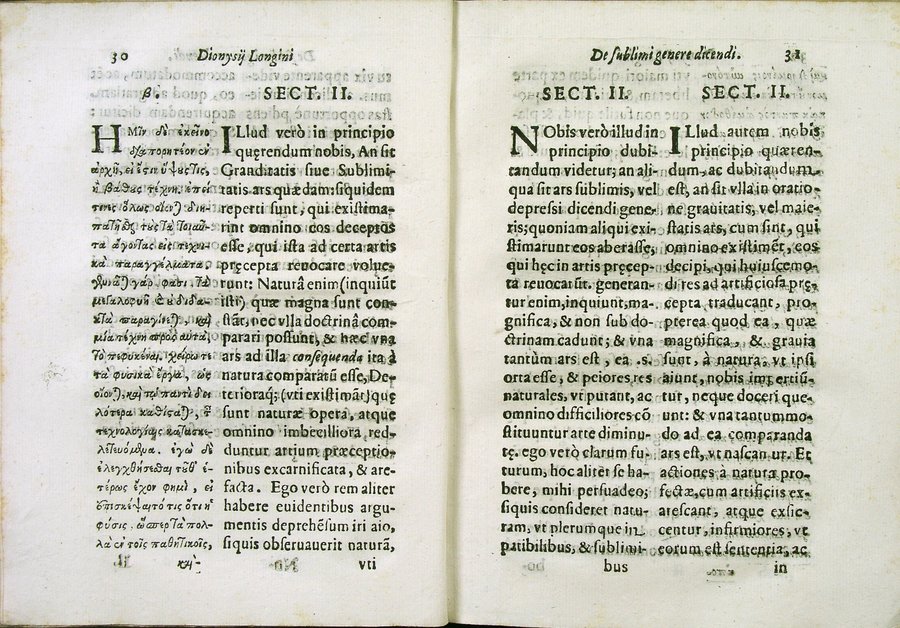 30
Dionysij Longini
β'.
ΗΜῖν δὲ ἐκεῖνο
διαπορητέον ἐν
ἀρχῇ, εἰ ἔστιν ὕψους τις,
ἢ βάθους τέχνη. ἐπεί
τινες ὅλως οἴονται διη-
πατῆσθαι τοὺς τὰ τοιαῦ-
τα ἄγοντας εἰς τεχνι-
κὰ παραγγέλματα.
γεννᾶται γάρ, φασι, τὰ
μεγαλοφυῆ καὶ οὐ διδα-
κτὰ παραγίνεται, καὶ
μία τέχνη πρὸς αὐτὰ,
τὸ πεφυκέναι. χείρω τε
τὰ φυσικὰ ἔργα, ὡς
οἴονται, καὶ τῷ παντὶ δει-
λότερα καθίσταται,
τεχνολογίαις κατασκε-
λετευόμενα. ἐγὼ δὲ
ἐλεγχθήσεσθαι τοῦθ' ἑ-
τέρως ἔχον φημὶ, εἰ
ἐπισκέψαιτό τις ὅτι ἡ
φύσις, ὥσπερ τὰ πολ-
λὰ ἐν τοῖς παθητικοῖς,
καὶ
SECT. II.
ILlud verò in principio
quęrendum nobis, An sit
Granditatis siue Sublimi-
tatis ars quædam: siquidem
reperti sunt, qui existima-
rint omnino eos deceptos
esse, qui ista ad certa artis
pręcepta reuocare volue-
runt: Naturâ enim (inquiũt
isti) quæ magna sunt con-
stãt, nec vlla doctrinâ com-
parari possunt, & hæc vna
ars ad illa consequenda ita à
natura comparatũ esse, De-
terioraq; (vti existimãt) quę
sunt naturæ opera, atque
omnino imbecilliora red-
duntur artium præceptio-
nibus excarnificata, & are-
facta. Ego verò rem aliter
habere euidentibus argu-
mentis deprehẽsum iri aio,
siquis obseruauerit naturã,
vti
De sublimi genere dicendi.
31
SECT. II.
NObis verò illud in
principio dubi-
tandum videtur; an ali-
qua sit ars sublimis, vel
depressi dicendi gene-
ris; quoniam aliqui exi-
stimarunt eos aberasse,
qui hęc in artis pręcep-
ta reuocarũt. generan-
tur enim, inquiunt, ma-
gnifica, & non sub do-
ctrinam cadunt; & vna
tantùm ars est, ea .s.
orta esse, & peiores res
naturales, vt putant, ac
omnino difficiliores cõ
stituuntur arte diminu-
tę. ego verò clarum fu-
turum, hoc aliter se ha-
bere, mihi persuadeo;
siquis consideret natu-
ram, vt plerumque in
patibilibus, & sublimi-
bus
SECT. II.
ILlud autem nobis
principio quæren-
dum, ac dubitandum
est, an sit vlla in oratio-
ne grauitatis, vel maie-
statis ars, cum sint, qui
omnino existimẽt, eos
decipi, qui huiuscemo-
di res ad artificiosa prę-
cepta traducant, pro-
pterea quod ea, quæ
magnifica, & grauia
sunt, à natura, vt ipsi
aiunt, nobis impertiũ-
tur, neque doceri que-
unt: & vna tantummo-
do ad ea comparanda
ars est, vt nascantur. Et
actiones à natura pro-
fectæ, cum artificiis ex-
arescant, atque exsic-
centur, infirmiores, vt
eorum est sententia, ac
in